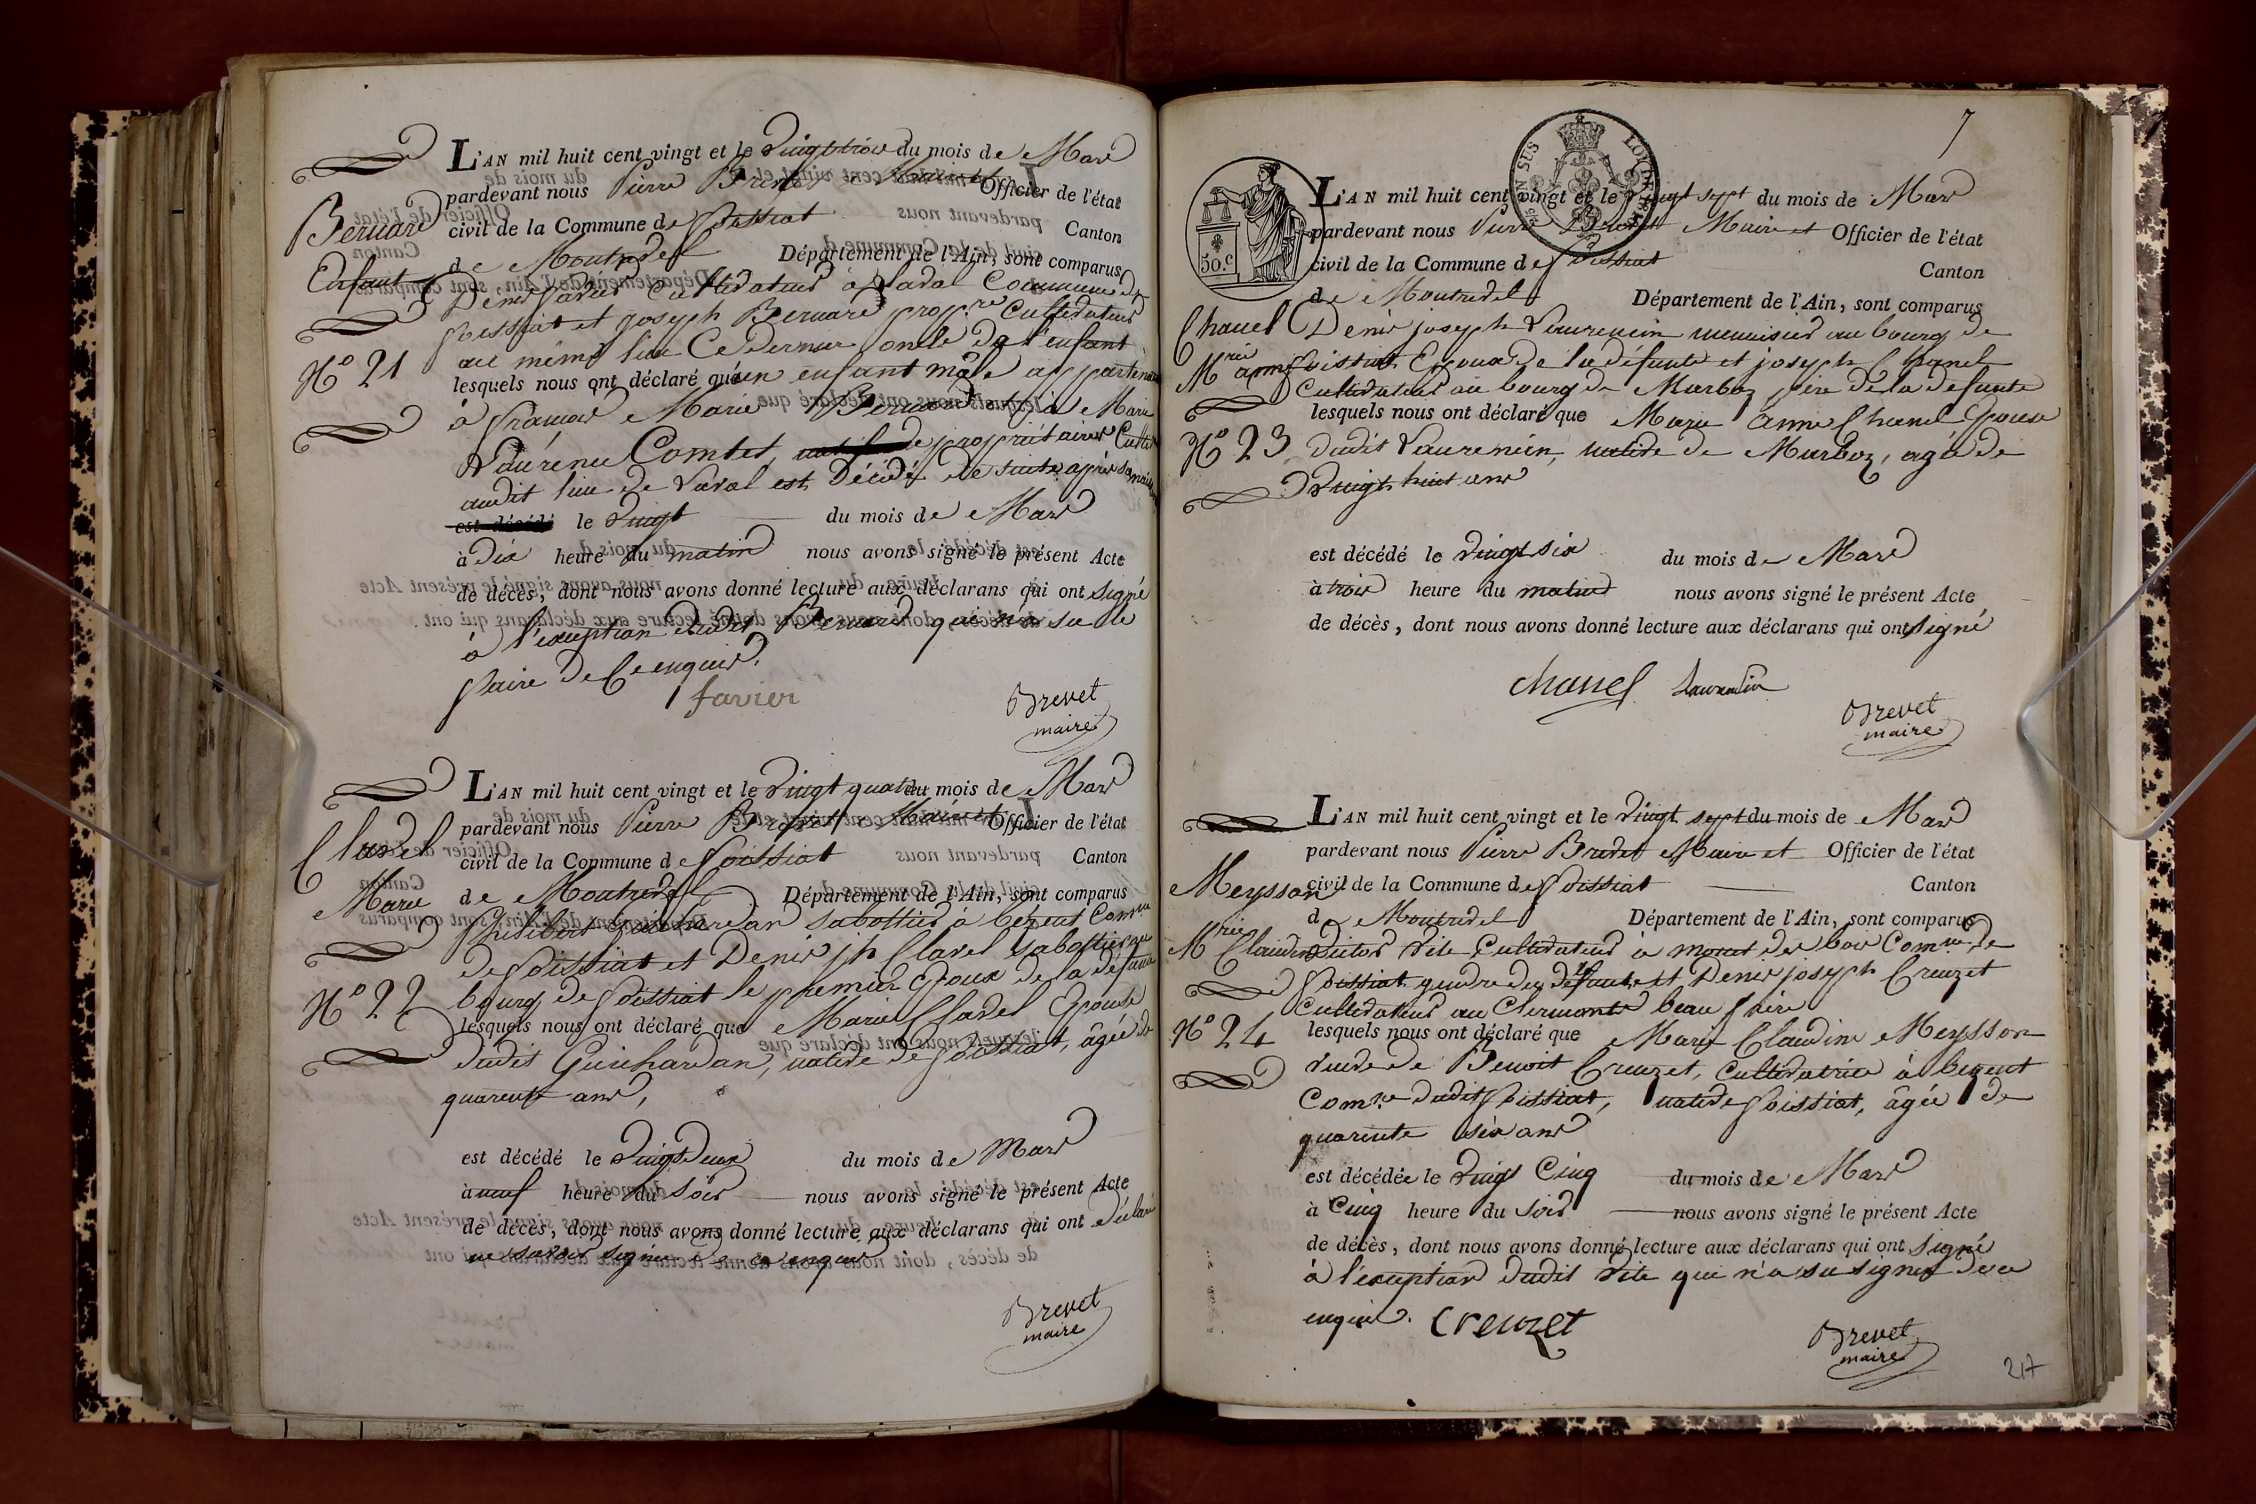 L'AN mil huit cent vingt et le vingt trois du mois de Mars
pardevant nous Pierre Brevet Maire et Officier de l'état
civil de la Commune de foissiat Canton
de Montrevel Département de l'Ain, sont comparus
Bernard
Enfant
N° 21
Denis favier Cultivateur à Laval Commune de
foissiat et joseph Bernard prop.re Cultivateur
au même lieu Ce dernier oncle de l'enfant
lesquels nous ont déclaré qu'un enfant mâle appartenant
à francois Marie Bernard et à Marie
Laurence Comtet, de propriétaires Cultiv
audit lieu de Laval est Décédé de suite après sa naiss
est décédé le vingt du mois de Mars
à dix heure du matin nous avons signé le présent Acte
de décès, dont nous avons donné lecture aux déclarans qui ont signé
à l'exception dudit Bernard qui n'a su le
faire de Ce enquis.
favier
Brevet
maire
L'AN mil huit cent vingt et le vingt quatre du mois de Mars
pardevant nous Pierre Brevet Maire et Officier de l'état
civil de la Commune de foissiat Canton
de Montrevel Département de l'Ain, sont comparus
Clavel
Marie
N° 22
philibert Guichardan sabottier à bezent Comm.ne
de foissiat et Denis j.ph Clavel sabottier au
bourg de foissiat le premier Epoux de la défunte
lesquels nous ont déclaré que Marie Clavel Epouse
dudit Guichardan, native de foissiat, âgée de
quarente ans,
est décédé le vingt Deux du mois de Mars
à neuf heure du soir nous avons signé le présent Acte
de décès, dont nous avons donné lecture aux déclarans qui ont déclaré
ne savoir signer de ce enquis.
Brevet
maire
7
50.c
L'AN mil huit cent vingt et le vingt sept du mois de Mars
pardevant nous Pierre Brevet Maire et Officier de l'état
civil de la Commune de foissiat Canton
de Montrevel Département de l'Ain, sont comparus
Chanel
M.rie anne
N° 23
Denis joseph Laurencin menuisier au bourg de
foissiat Epoux de la défunte et joseph Chanel
Cultivateur au bourg de Marboz père de la défunte
lesquels nous ont déclaré que Marie anne Chanel Epouse
dudit Laurencin, native de Marboz, agée de
vingt huit ans
est décédé le vingt six du mois de Mars
à trois heure du matin nous avons signé le présent Acte
de décès, dont nous avons donné lecture aux déclarans qui ont signé
chanel Laurencin
Brevet
maire
L'AN mil huit cent vingt et le vingt sept du mois de Mars
pardevant nous Pierre Brevet Maire et Officier de l'état
civil de la Commune de foissiat Canton
de Montrevel Département de l'Ain, sont comparus
Meysson
M.rie Claudine
N° 24
victor vite Cultivateur à mont des bois Comm.ne de
foissiat gendre de la défunte et Denis joseph Creuzet
Cultivateur au Clermont beau frère
lesquels nous ont déclaré que Marie Claudine Meysson
veuve de Benoit Creuzet, Cultivatrice à bezent
Com.ne dudit foissiat, native de foissiat, âgée de
quarente six ans
est décédée le vingt Cinq du mois de Mars
à Cinq heure du soir nous avons signé le présent Acte
de décès, dont nous avons donné lecture aux déclarans qui ont signé
à l'exception dudit vite qui n'a su signer de ce
enquis. Creuzet
Brevet
maire
217